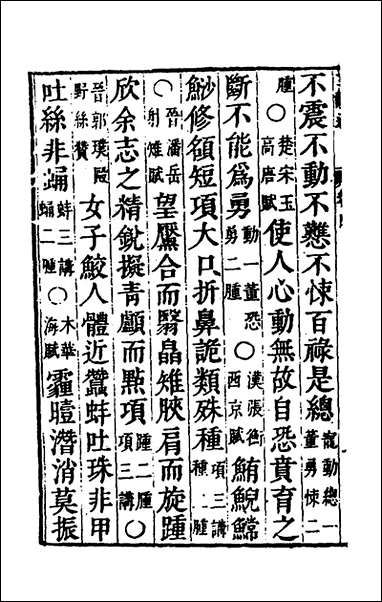 不震不動不戁不悚百祿是總寵動總一董勇悚二
腫○楚宋玉高唐賦使人心動無故自恐賁育之
斷不能爲勇動一董恐勇二腫○漢張衡西京賦鮪鯢鱨
魦修額短項大口折鼻詭類殊種項三講種二腫
○晉潘岳射雉賦望黶合而翳皛雉脥肩而旋踵
欣余志之精銳擬青顱而點項踵二腫項三講○
晉郭璞野絲贊女子鮫人體近蠶蚌吐珠非甲
吐絲非蛹蚌三講蛹二腫○木華海賦霾曀潛消莫振